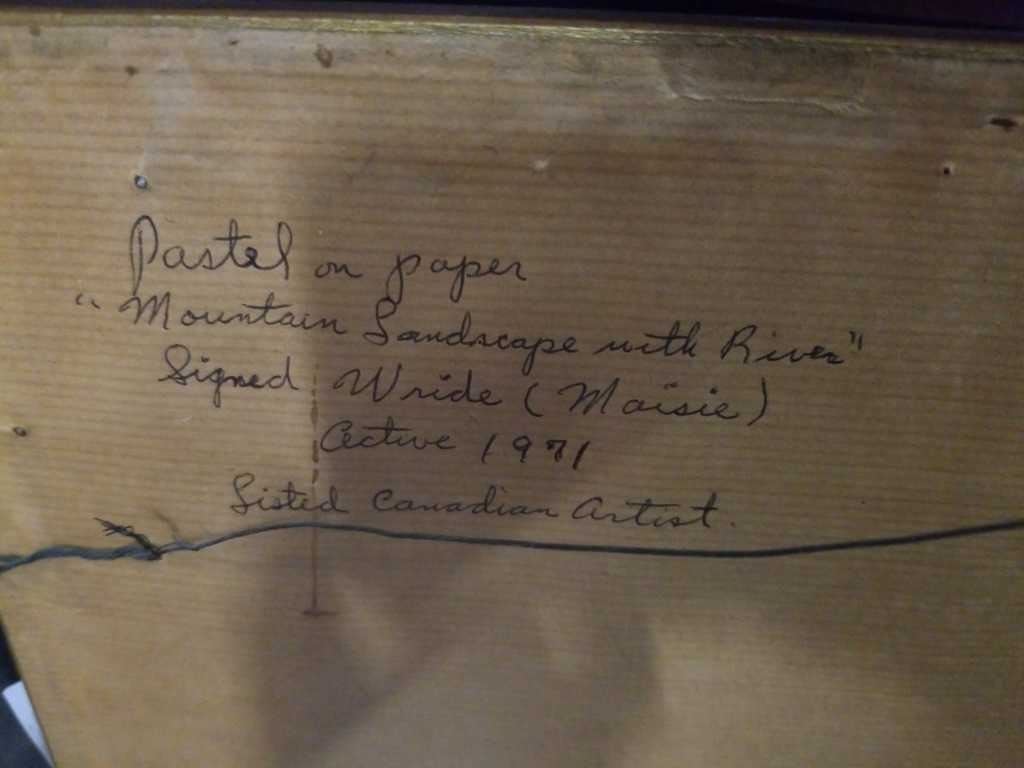 Pastel on paper
"Mountain Landscape with River"
Signed Wride (Maisie)
Active 1971
Listed Canadian Artist.